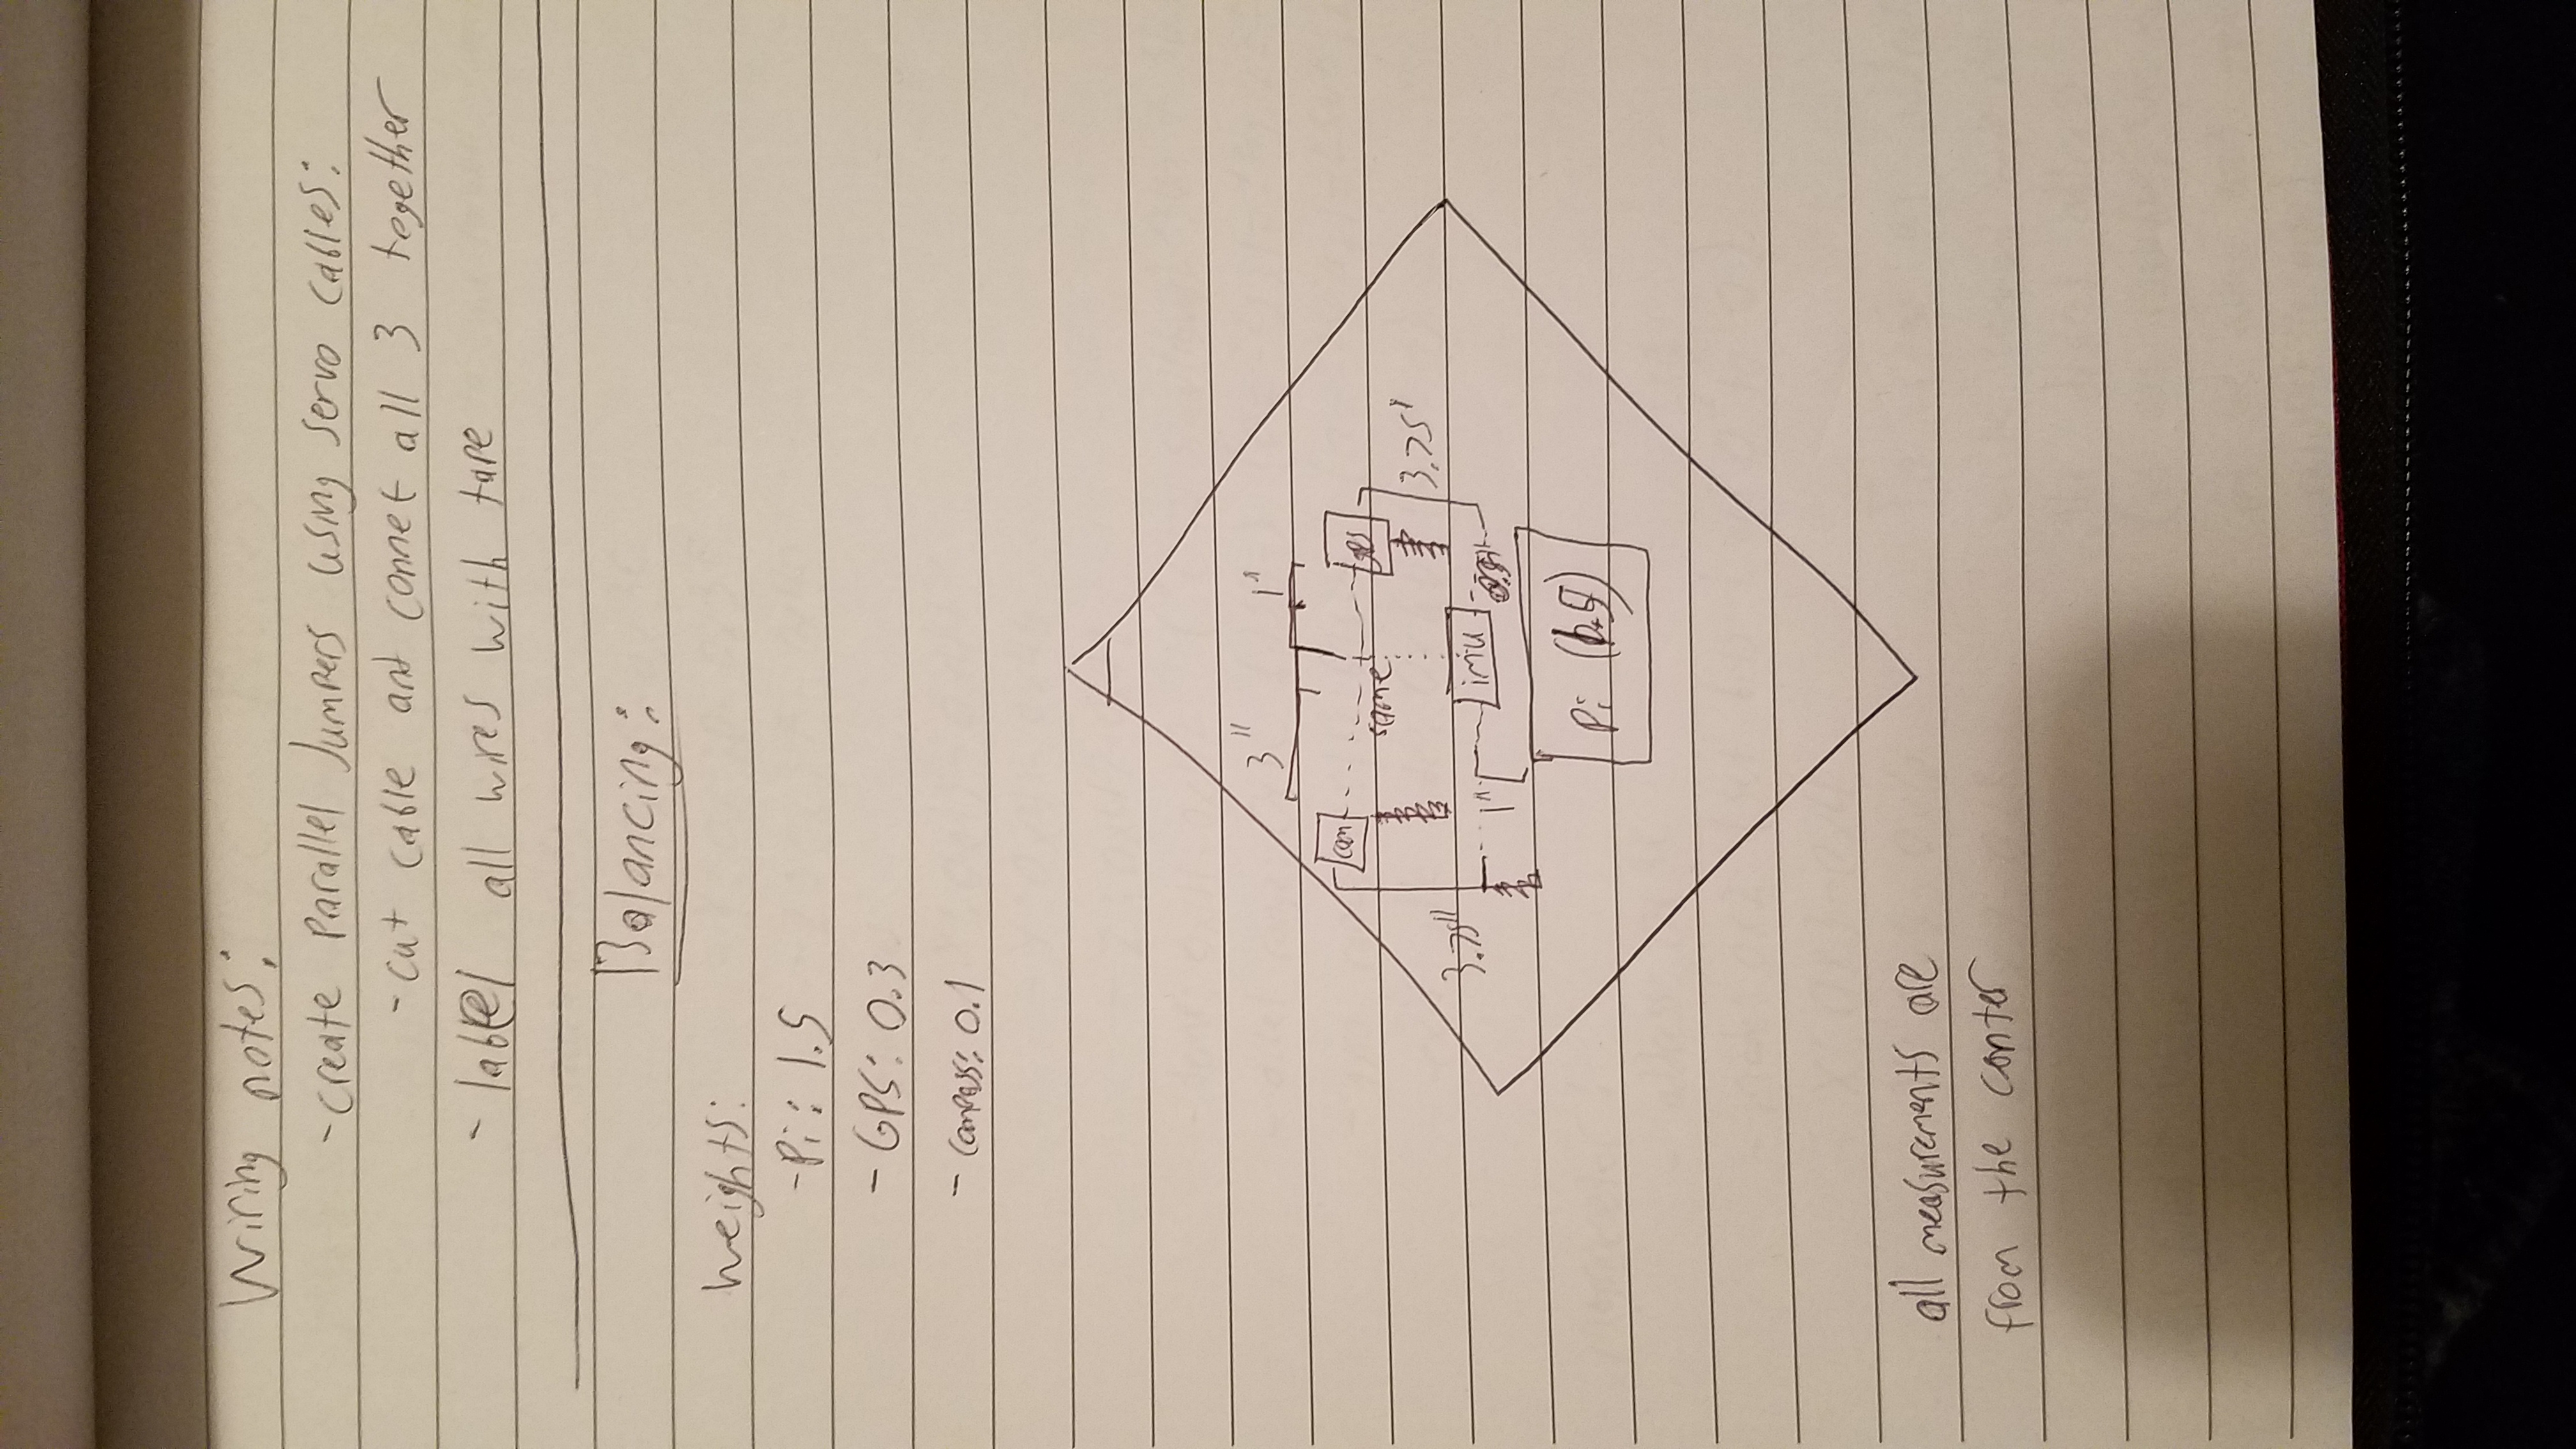 Wiring notes:
-create Parallel Jumpers using servo cables:
-cut cable and connet all 3 together
-label all wires with tape
Balancing:
Weights:
-Pi: 1.5
-GPS: 0.3
-compass: 0.1
3" 1"
com GPS
same
3.75" 3.75"
imu
1"
Pi
all measurements are
from the center